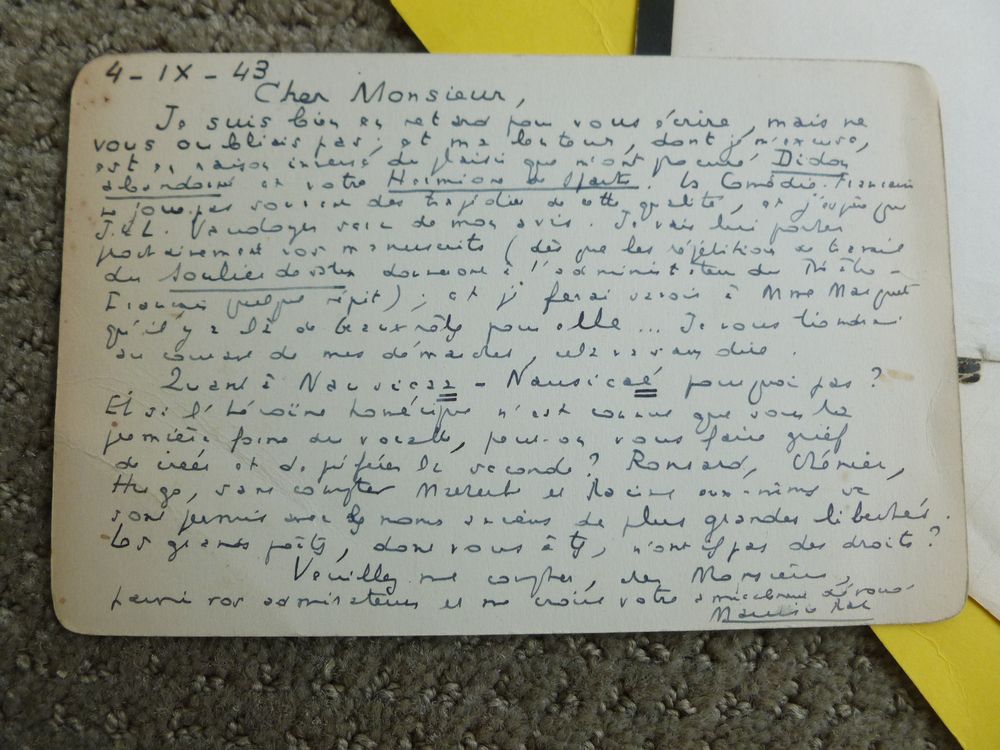 4-IX-43
Cher Monsieur,
Je suis bien en retard pour vous écrire, mais ne
vous oubliais pas, et ma lenteur, dont je m'excuse,
est en raison inverse du plaisir que m'ont procuré Didon
abandonnée et votre Hermione de Sparte. La Comédie-Française
ne joue pas souvent des tragédies de cette qualité, et j'espère que
J.-L. Vaudoyer sera de mon avis. Je vais lui porter
prochainement vos manuscrits (dès que les répétitions de travail
du Soulier de satin donneront à l'administrateur du Théâtre-
Français quelque répit); et je ferai savoir à Mme Marquet
qu'il y a là de beaux rôles pour elle... Je vous tiendrai
au courant de mes démarches, cela va sans dire.
Quant à Nausicaa - Nausicaé pourquoi pas?
Et si l'héroïne homérique n'est connue que sous la
première forme du vocable, peut-on vous faire grief
de créer et de préférer la seconde? Ronsard, Chénier,
Hugo, sans compter et Racine eux-mêmes se
sont permis avec les noms anciens de plus grandes libertés.
Les grands poètes, dont vous êtes, n'ont-ils pas des droits?
Veuillez me compter, cher Monsieur,
parmi vos admirateurs et me croire votre amicalement dévoué
Maurice Rat